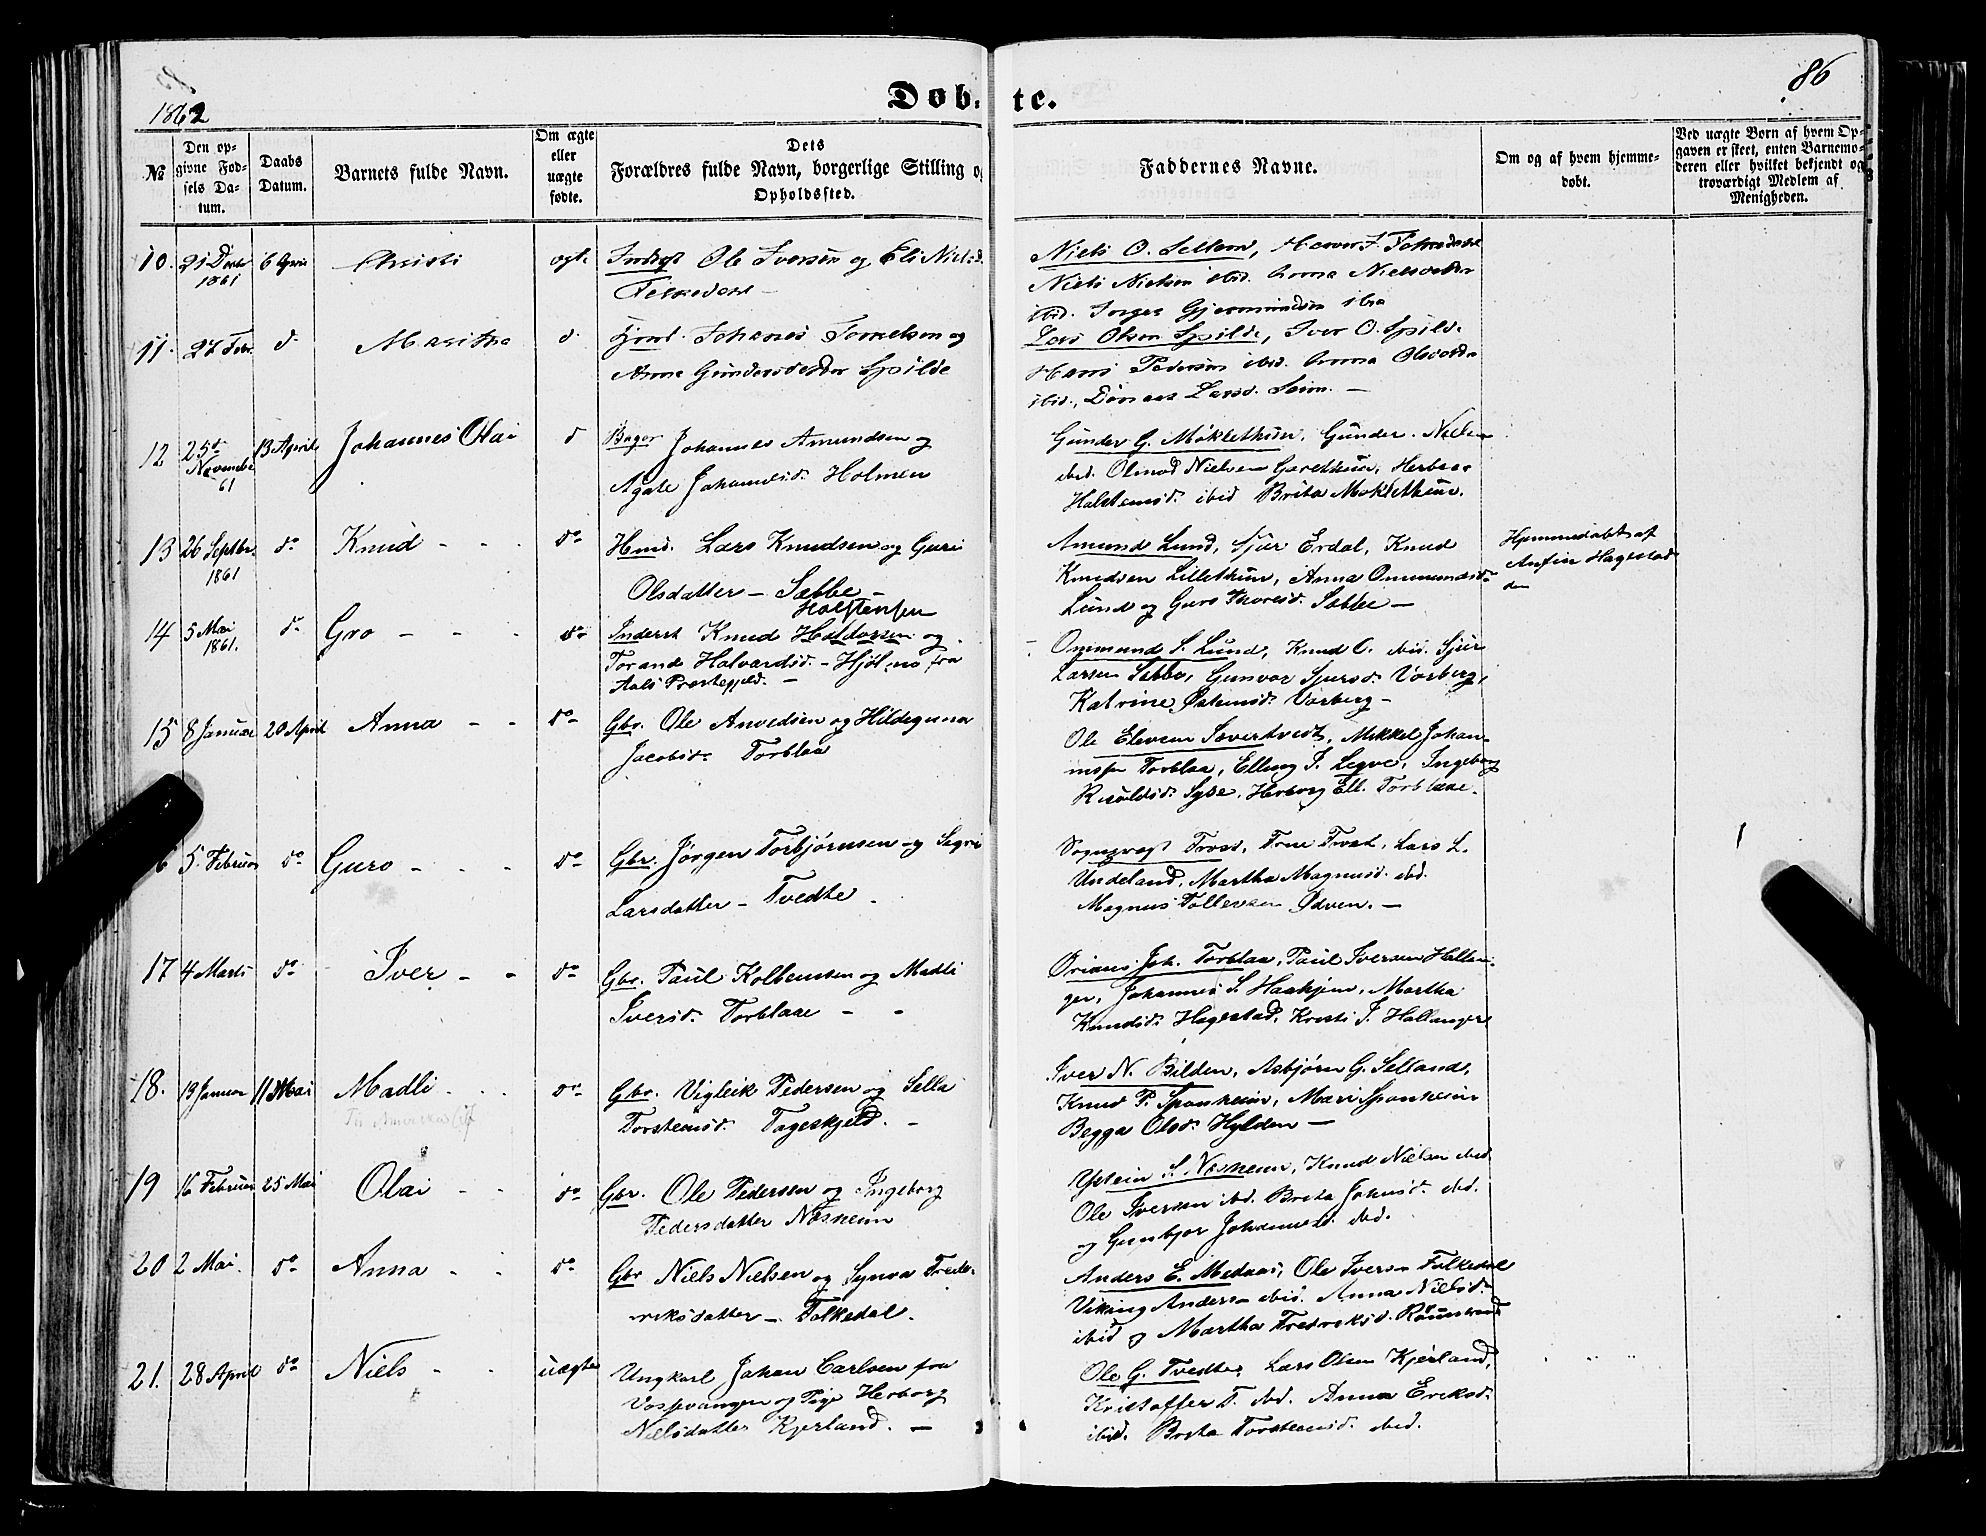 86
1862
Døbte.
№
Den opgivne Fødsels Datum.
Daabs Datum.
Barnets fulde Navn.
Om ægte eller uægte fødte.
Dets Forældres fulde Navn, borgerlige Stilling og Opholdssted.
Faddernes Navne.
Om og af hvem hjemmedøbt.
Ved uægte Børn af hvem Opgaven er skeet, enten Barnemoderen eller hvilket bekjendt og troværdigt Medlem af Menigheden.
10. 21 Decbr 1861 6 April Christi ægte
Ole Iversen og Eli Nielsd.
Folkedal
Niels O. Selland,
Niels Nielsen ibid. Anna Nielsdatter
ibid. Gjermundsen ibid
11. 27 Febr. do
Johannes Tomelsen og
Anna Gundersdatter Spilde
Lars Olsen Spilde, Iver O. Spilde
Hans Pedersen ibid. Anna Olsdatter
ibid., Larsd. Seim. —
12 25de November 61 13 April Johannes Olai do
Johannes Amundsen og
Agate Johannesd. Holmen
Gunder G. Møklethun, Gunder Nielsen
ibid. Olmod Nielsen Garethun, Herborg
Halstensd. ibid Brita Moklethun.
13 26 Septbr. 1861 do Knud - - do
Huusm. Lars Knudsen og Guri
Olsdatter — Sæbbe —
Amund Lund, Sjur Erdal, Knud
Knudsen Lillethun, Anna Ommundsd.
Lund og Guro Thoresd. Sæbbe —
Hjemmedøbt af
Anfin Hagestad
14 5 Mai 1861. do Gro - - - do
Holstensen
Inderst Knud Haldorsen og
Torand Halvardsd. - Hjølmo fra
Aals Præstegjeld. —
Ommund S. Lund, Knud O. ibid. Sjur
Larsen Sæbbe, Gunvor Sjursd. Varberg,
Katrine Østensd. Varberg —
15 8 Januar 20 April Anna - - do
Gbr. Ole Anvedsen og Hildeguna
Jacobsd. Torblaa
Ole Elevsen Sævertvedt, Mikkel Johannessen Torblaa, Elling J. Legve, Ingeborg
Sysse, Herborg Ell. Torblaae.
5. Februar do Guro - - - do
Gbr. Jørgen Torbjørnsen og Segri
Larsdatter — Tvedte.
Sognevogt Trost, Trost, Lars L.
Undeland, Martha Magnusd. ibid.
Magnus Tollevsen Ødven. —
17 4 Marts do Iver - - do
Gbr. Paul Kolbensen og Madli
Iversd. Torblaae - -
Joh. Torblaa, Paul Iversen Hallanger, Johannes S. Haahjem, Martha
Knudsd. Hagestad, Kristi J. Hallanger
18. 19 Januar 11 Mai Madli - - do
Gbr. Vigleik Pedersen og Sella
Torstensd. Tageskjeld. -
Iver N. Bilden, Asbjørn G. Selland,
Knud P. Sponheim, Mari Sponheim
Begga Olsd. Hylden —
19 16 Februar 25 Mai Olai - - do
Gbr. Ole Pedersen og Ingeborg
Pedersdatter Næsheim
Østein S. Næsheim, Knud Nielsen ibid.
Ole Iversen ibid. Brita Johnsd. ibid.
og Gunbjor Johannesd. ibid.
20 2 Mai. do Anna - - do
Gbr Niels Nielsen og Synva Frederiksdatter — Folkedal.
Anders E. Medaas, Ole Iversen Folkedal
Viking Andersen ibid. Anna Nielsd.
ibid og Martha Fredriksd.
21. 28 April do Niels - - uægte
Ungkarl Johan Carlsen fra
Vossevangen og Pige Herborg
Nielsdatter Kjerland. —
Ole G. Tvedte, Lars Olsen Kjerland,
Kristoffer T. ibid. Anna Eriksd.
ibid. Brita Torstensd. ibid.